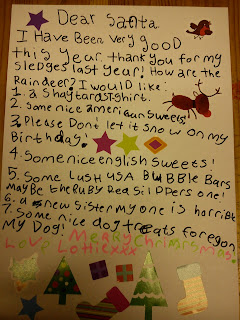 Dear Santa
I Have Been very good
this Year. thank You for my
sledges last year! How are the
Raindeer? I would like:
1. a Shaytards t.shirt.
2. Some nice american sweets!
3. Please Dont let it snow on my
Birthday!
4. Some nice english sweets!
5. Some LUSH USA BUBBLE Bars
Maybe the Ruby Red Slippers one!
6. a new sister my one is horrible
7. Some nice dog treats for egon
My Dog! Merry Christmas.
Love Lottie xxx